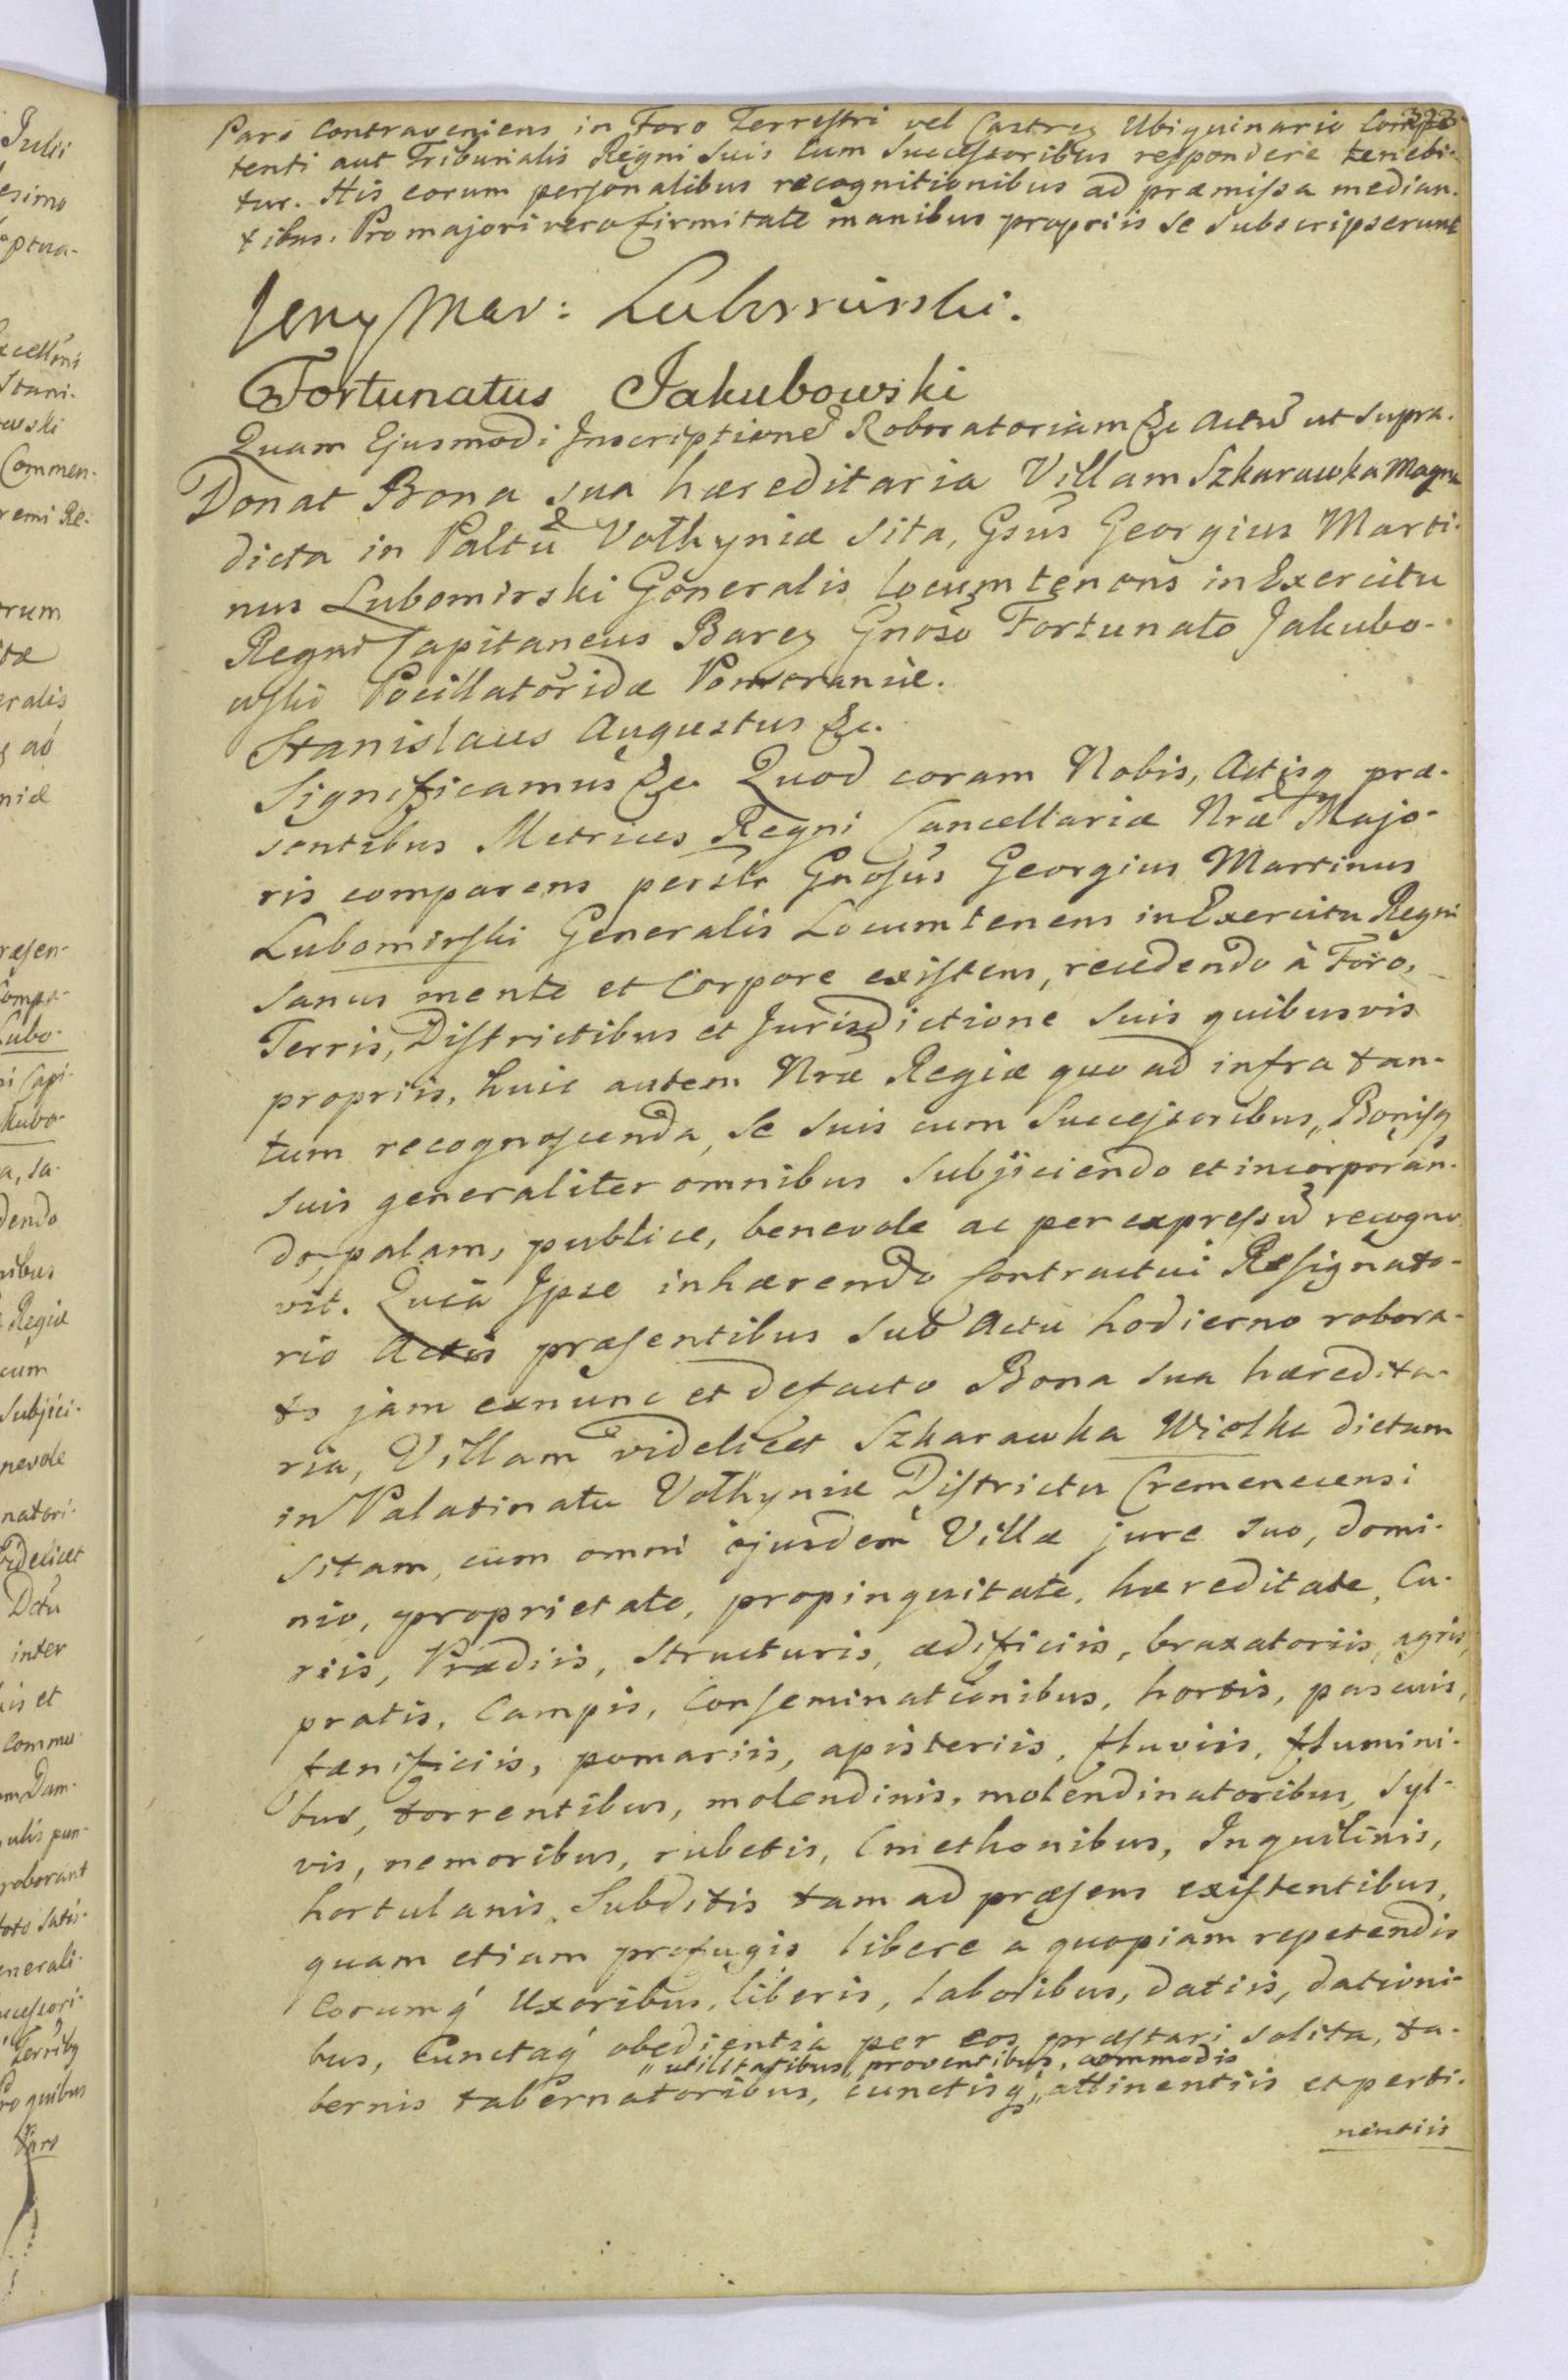 Pars Contraveniens in Foro Terrestri vel Castren Ubiquinario Compe-
tenti aut Tribunalis Regni suis cum Successoribus respondere tenebi-
tur. His eorum personalibus recognitionibus ad præmissa median-
tibus. Pro majori vero firmitate manibus propriis se subscripserunt
Jerzy Mar: Lubomirski.
Fortunatus Jakubowski
Quam Ejusmodi Inscriptione Roboratoriam &c Actu ut supra.
Donat Bona sua hæreditaria Villam Szkarawka Magna
dicta in Paltu Volhyniæ sita, Gsus Georgius Marti-
nus Lubomirski Generalis locumtenens in Exercitu
Regni Capitaneus Baren Gnoso Fortunato Jakubo-
wski Pocillatoridæ Pomeraniæ.
Stanislaus Augustus &c.
Significamus &c. Quod coram Nobis, Actisq præ-
sentibus Metrices Regni Cancellariæ Nræ Majo-
ris comparens persltr Gnosus Georgius Martinus
Lubomirski Generalis Locumtenens in Exercitu Regni
sanus mente et Corpore existens, recedendo à Foro,
Terris, Districtibus et Jurisdictione suis quibusvis
propriis, huic autem Nræ Regiæ quo ad infra tan-
tum recognoscenda, se suis cum Successoribus, Bonisq
suis generaliter omnibus subjiciendo et incorporan-
do, palam, publice, benevole ac per expressu recogno
vit. Quia Ipse inhærendo Contractui Resignato-
rio Actis præsentibus sub Actu hodierno robora-
to jam exnunc et defacto Bona sua hæredita-
ria, Villam videlicet Szkarawka Wielka dictam
in Palatinatu Volhyniæ Districtu Cremenecensi
sitam, cum omni ejusdem Villæ jure suo, domi-
nio, proprietate, propinquitate, hæreditate, Cu-
riis, Prædiis, structuris, ædificiis, braxatoriis, agris,
pratis, Campis, Conseminationibus, hortis, pascuis,
fænificiis, pomariis, apisteriis, fluviis, flumini-
bus, torrentibus, molendinis, molendinatoribus, syl-
vis, nemoribus, rubetis, Cmethonibus, Inquilinis,
hortulanis, Subditis tam ad præsens existentibus,
quam etiam profugis libere a quopiam repetendis
Eorumq uxoribus, liberis, laboribus, datiis, dationi-
bus, Cunctaq obedientia per eos præstari solita, ta-
"utilitatibus, proventibus, commodis
bernis tabernatoribus, cunctisq," attinentiis et perti-
nentiis